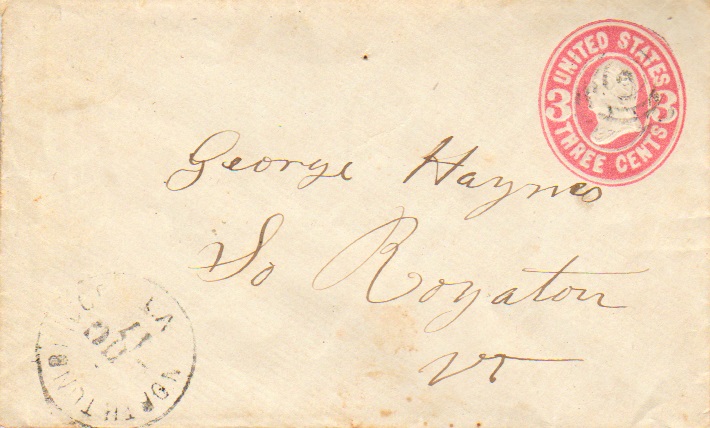 UNITED STATES
3 3
THREE CENTS
George Haynes
So Royaton
Vt
NORTH TUNB
11